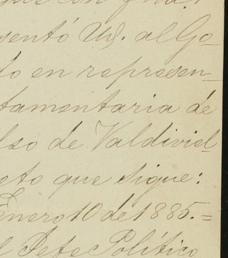 sentó Ud. al Go-
do en represen-
tamentaria de
lso de Valdiviel
eto que sigue:
Enero 10 de 1885.=
l Jefe Político